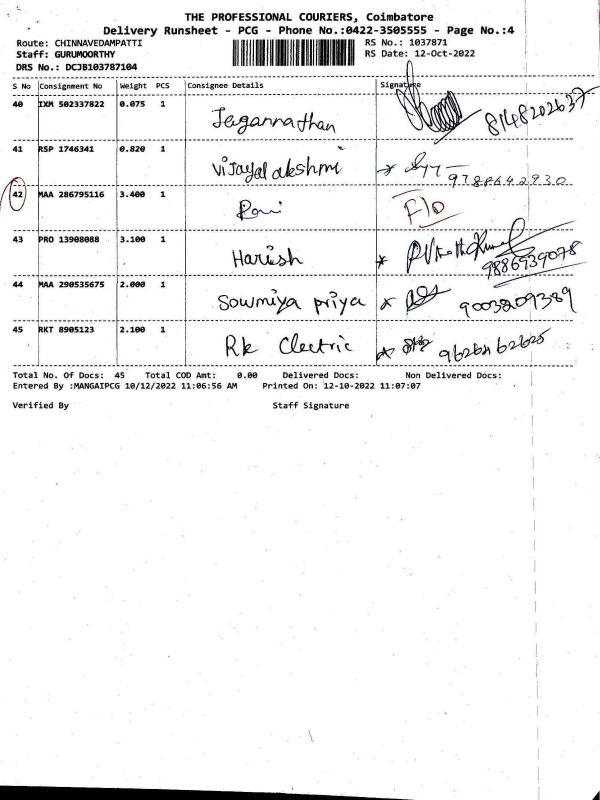 THE PROFESSIONAL COURIERS, Coimbatore
Delivery Runsheet - PCG - Phone No.:0422-3505555 - Page No.:4
Route: CHINNAVEDAMPATTI RS No.: 1037871
Staff: GURUMOORTHY RS Date: 12-Oct-2022
DRS No.: DCJB103787104
S No Consignment No Weight PCS Consignee Details Signature
40 IXM 502337822 0.075 1 Jegannathan 8148202637
41 RSP 1746341 0.820 1 Vijayalakshmi 9788642930
42 MAA 286795116 3.400 1 Rani F/O
43 PRO 13908088 3.100 1 Harish 9886939078
44 MAA 290535675 2.000 1 Sowmiya priya 9003209389
45 RKT 8905123 2.100 1 Rk Electric 9626462625
Total No. Of Docs: 45 Total COD Amt: 0.00 Delivered Docs: Non Delivered Docs:
Entered By :MANGAIPCG 10/12/2022 11:06:56 AM Printed On: 12-10-2022 11:07:07
Verified By Staff Signature